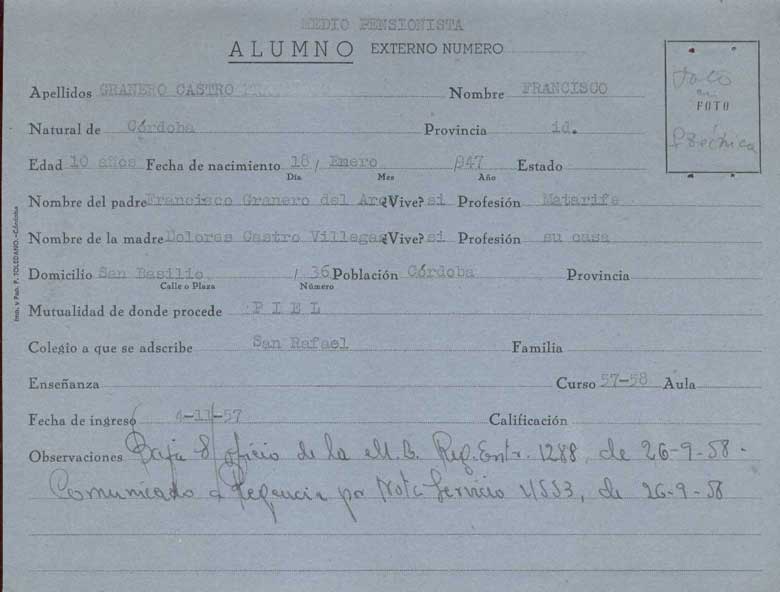 MEDIO PENSIONISTA
ALUMNO EXTERNO NUMERO
Apellidos GRANERO CASTRO Nombre FRANCISCO
foto en FOTO
Natural de Córdoba Provincia id.
Edad 10 años Fecha de nacimiento 18 / Enero / 947 Estado
Día Mes Año
Nombre del padre Francisco Granero del Arc ¿Vive? si Profesión Matarife
Nombre de la madre Dolores Castro Villegas ¿Vive? si Profesión su casa
Domicilio San Basilio / 36 Población Córdoba Provincia
Calle o Plaza Número
Mutualidad de donde procede P I E L
Colegio a que se adscribe San Rafael Familia
Enseñanza Curso 57-58 Aula
Fecha de ingreso 4-11-57 Calificación
Observaciones Baja S/ oficio de la M.C. Reg. Entr. 1288, de 26-9-58.
Comunicado a Regencia por Nota-Servicio 4/553, de 26-9-58
Imp. y Pap. P. TOLEDANO.-Córdoba